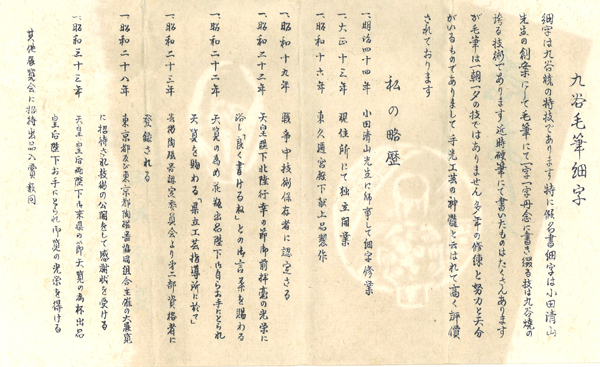 九谷毛筆細字
細字は九谷焼の特技であります特に仮名書細字は小田清山
先生の創案にして毛筆にて一字一字丹念に書き綴る技は九谷焼の
誇る技術であります近時硬筆にて書いたものはたくさんあります
が毛筆は一朝一夕の技ではありません多年の修練と努力と天分
がいるものでありまして手先工芸の神髄と云はれて高く評價
されております
私の略歴
一、明治四十四年 小田清山先生に師事して細字修業
一、大正十三年 現住所にて独立開業
一、昭和十六年 東久邇宮殿下献上品製作
一、昭和十九年 戦争中技術保存者に認定さる
一、昭和二十二年 天皇陛下北陸行幸の節御前揮毫の光栄に
浴し「良く書けるね」との御言葉を賜わる
天覧の為め花瓶出品陛下御自らお手にとられ
天賞を賜わる「県立工芸指導所に於て」
一、昭和二十三年 陶磁器認定委員会より第二部資格者に
登録される
一、昭和二十八年 東京都及び東京都陶磁器協同組合主催の大展覧
に招待され技術の公開をして感謝状を受ける
一、昭和三十三年 天皇皇后両陛下御来県の節天覧の為杯出品
皇后陛下お手にとられ御覧の光栄を得ける
其他展覧会に招待出品入賞数回